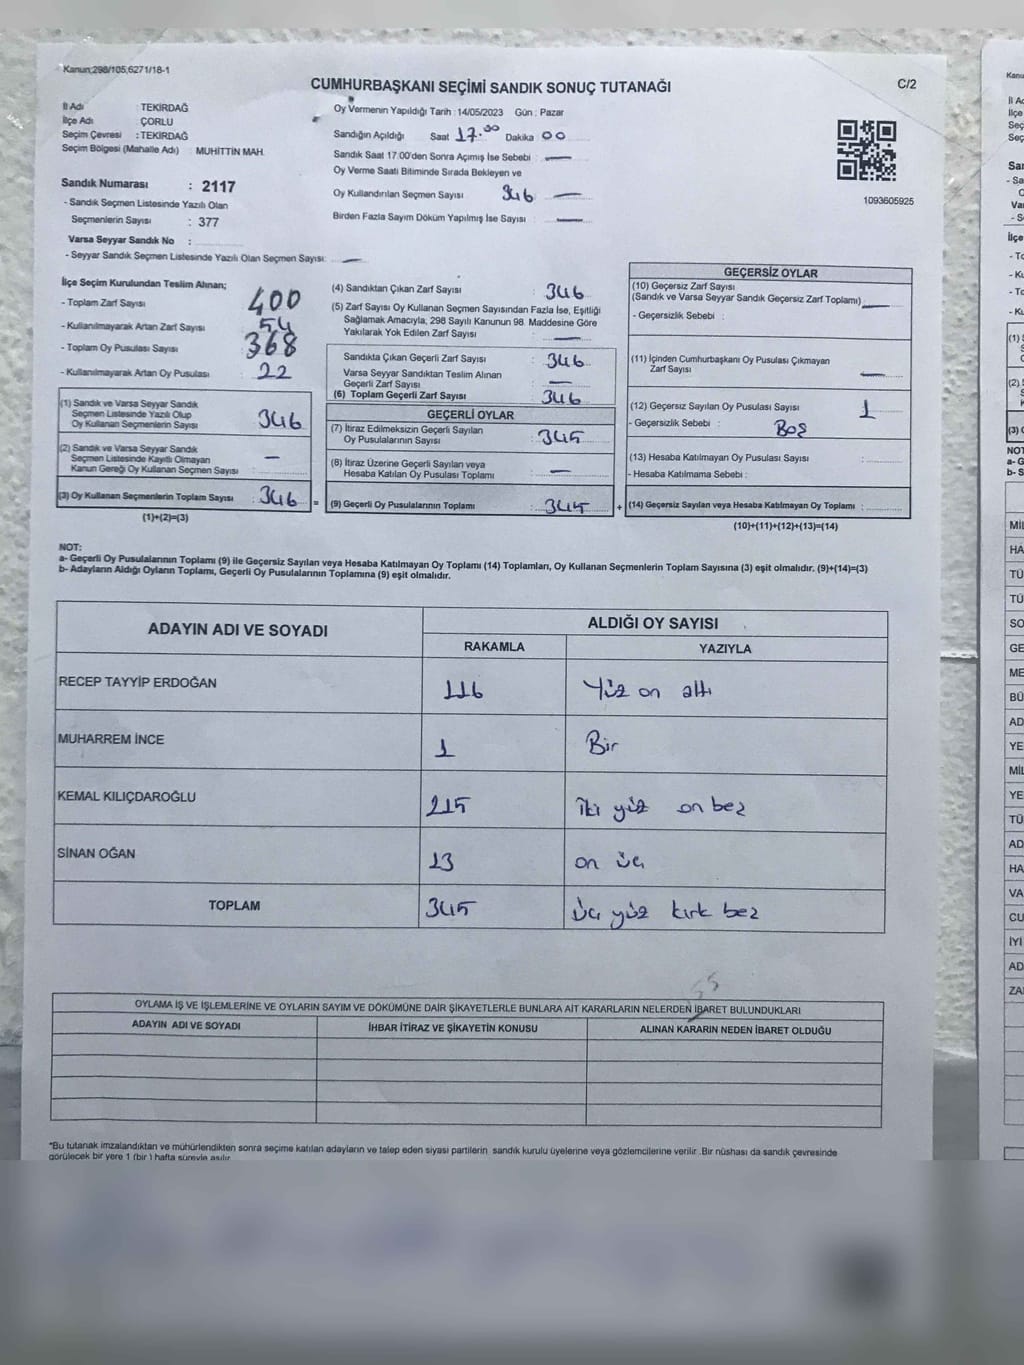 Kanun;298/105,6271/18-1
CUMHURBAŞKANI SEÇİMİ SANDIK SONUÇ TUTANAĞI
C/2
İl Adı : TEKİRDAĞ
İlçe Adı : ÇORLU
Seçim Çevresi : TEKİRDAĞ
Seçim Bölgesi (Mahalle Adı) : MUHİTTİN MAH.
Oy Vermenin Yapıldığı Tarih : 14/05/2023 Gün : Pazar
Sandığın Açıldığı Saat 17.00 Dakika 00
Sandık Saat 17.00'den Sonra Açımış İse Sebebi : —
Oy Verme Saati Bitiminde Sırada Bekleyen ve
Oy Kullandırılan Seçmen Sayısı 346 —
Birden Fazla Sayım Döküm Yapılmış İse Sayısı : —
1093605925
Sandık Numarası : 2117
- Sandık Seçmen Listesinde Yazılı Olan
Seçmenlerin Sayısı : 377
Varsa Seyyar Sandık No :
- Seyyar Sandık Seçmen Listesinde Yazılı Olan Seçmen Sayısı: —
İlçe Seçim Kurulundan Teslim Alınan;
- Toplam Zarf Sayısı 400
- Kullanılmayarak Artan Zarf Sayısı : 54
- Toplam Oy Pusulası Sayısı : 368
- Kullanılmayarak Artan Oy Pusulası : 22
(1) Sandık ve Varsa Seyyar Sandık
Seçmen Listesinde Yazılı Olup
Oy Kullanan Seçmenlerin Sayısı : 346
(2) Sandık ve Varsa Seyyar Sandık
Seçmen Listesinde Kayıtlı Olmayan
Kanun Gereği Oy Kullanan Seçmen Sayısı : —
(3) Oy Kullanan Seçmenlerin Toplam Sayısı : 346 =
(1)+(2)=(3)
(4) Sandıktan Çıkan Zarf Sayısı : 346
(5) Zarf Sayısı Oy Kullanan Seçmen Sayısından Fazla İse, Eşitliği
Sağlamak Amacıyla, 298 Sayılı Kanunun 98. Maddesine Göre
Yakılarak Yok Edilen Zarf Sayısı : —
Sandıkta Çıkan Geçerli Zarf Sayısı : 346
Varsa Seyyar Sandıktan Teslim Alınan
Geçerli Zarf Sayısı : —
(6) Toplam Geçerli Zarf Sayısı : 346
GEÇERLİ OYLAR
(7) İtiraz Edilmeksizin Geçerli Sayılan
Oy Pusulalarının Sayısı : 345
(8) İtiraz Üzerine Geçerli Sayılan veya
Hesaba Katılan Oy Pusulası Toplamı : —
(9) Geçerli Oy Pusulalarının Toplamı : 345 +
GEÇERSİZ OYLAR
(10) Geçersiz Zarf Sayısı
(Sandık ve Varsa Seyyar Sandık Geçersiz Zarf Toplamı) : —
- Geçersizlik Sebebi :
(11) İçinden Cumhurbaşkanı Oy Pusulası Çıkmayan
Zarf Sayısı : —
(12) Geçersiz Sayılan Oy Pusulası Sayısı : 1
- Geçersizlik Sebebi : Boş
(13) Hesaba Katılmayan Oy Pusulası Sayısı :
- Hesaba Katılmama Sebebi :
(14) Geçersiz Sayılan veya Hesaba Katılmayan Oy Toplamı :
(10)+(11)+(12)+(13)=(14)
NOT:
a- Geçerli Oy Pusulalarının Toplamı (9) ile Geçersiz Sayılan veya Hesaba Katılmayan Oy Toplamı (14) Toplamları, Oy Kullanan Seçmenlerin Toplam Sayısına (3) eşit olmalıdır. (9)+(14)=(3)
b- Adayların Aldığı Oyların Toplamı, Geçerli Oy Pusulalarının Toplamına (9) eşit olmalıdır.
ADAYIN ADI VE SOYADI ALDIĞI OY SAYISI
RAKAMLA YAZIYLA
RECEP TAYYİP ERDOĞAN 116 Yüz on altı
MUHARREM İNCE 1 Bir
KEMAL KILIÇDAROĞLU 215 İki yüz on beş
SİNAN OĞAN 13 on üç
TOPLAM 345 üç yüz kırk beş
OYLAMA İŞ VE İŞLEMLERİNE VE OYLARIN SAYIM VE DÖKÜMÜNE DAİR ŞİKAYETLERLE BUNLARA AİT KARARLARIN NELERDEN İBARET BULUNDUKLARI
ADAYIN ADI VE SOYADI İHBAR İTİRAZ VE ŞİKAYETİN KONUSU ALINAN KARARIN NEDEN İBARET OLDUĞU
*Bu tutanak imzalandıktan ve mühürlendikten sonra seçime katılan adayların ve talep eden siyasi partilerin sandık kurulu üyelerine veya gözlemcilerine verilir .Bir nüshası da sandık çevresinde
görülecek bir yere 1 (bir ) hafta süreyle asılır.